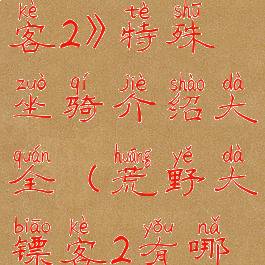 kè tè shū
客2》特殊
zuò qí jiè shào dà
坐骑介绍大
quán huāng yě dà
全(荒野大
biāo kè yǒu nǎ
镖客2有哪